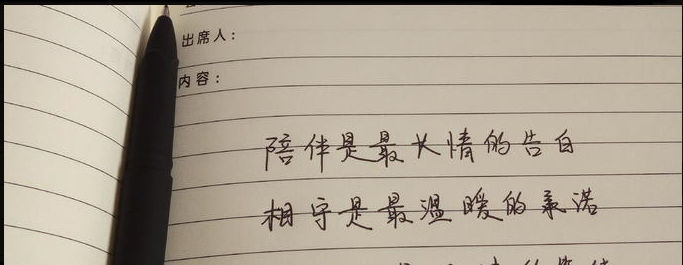 出席人：
内容：
陪伴是最长情的告白
相守是最温暖的承诺